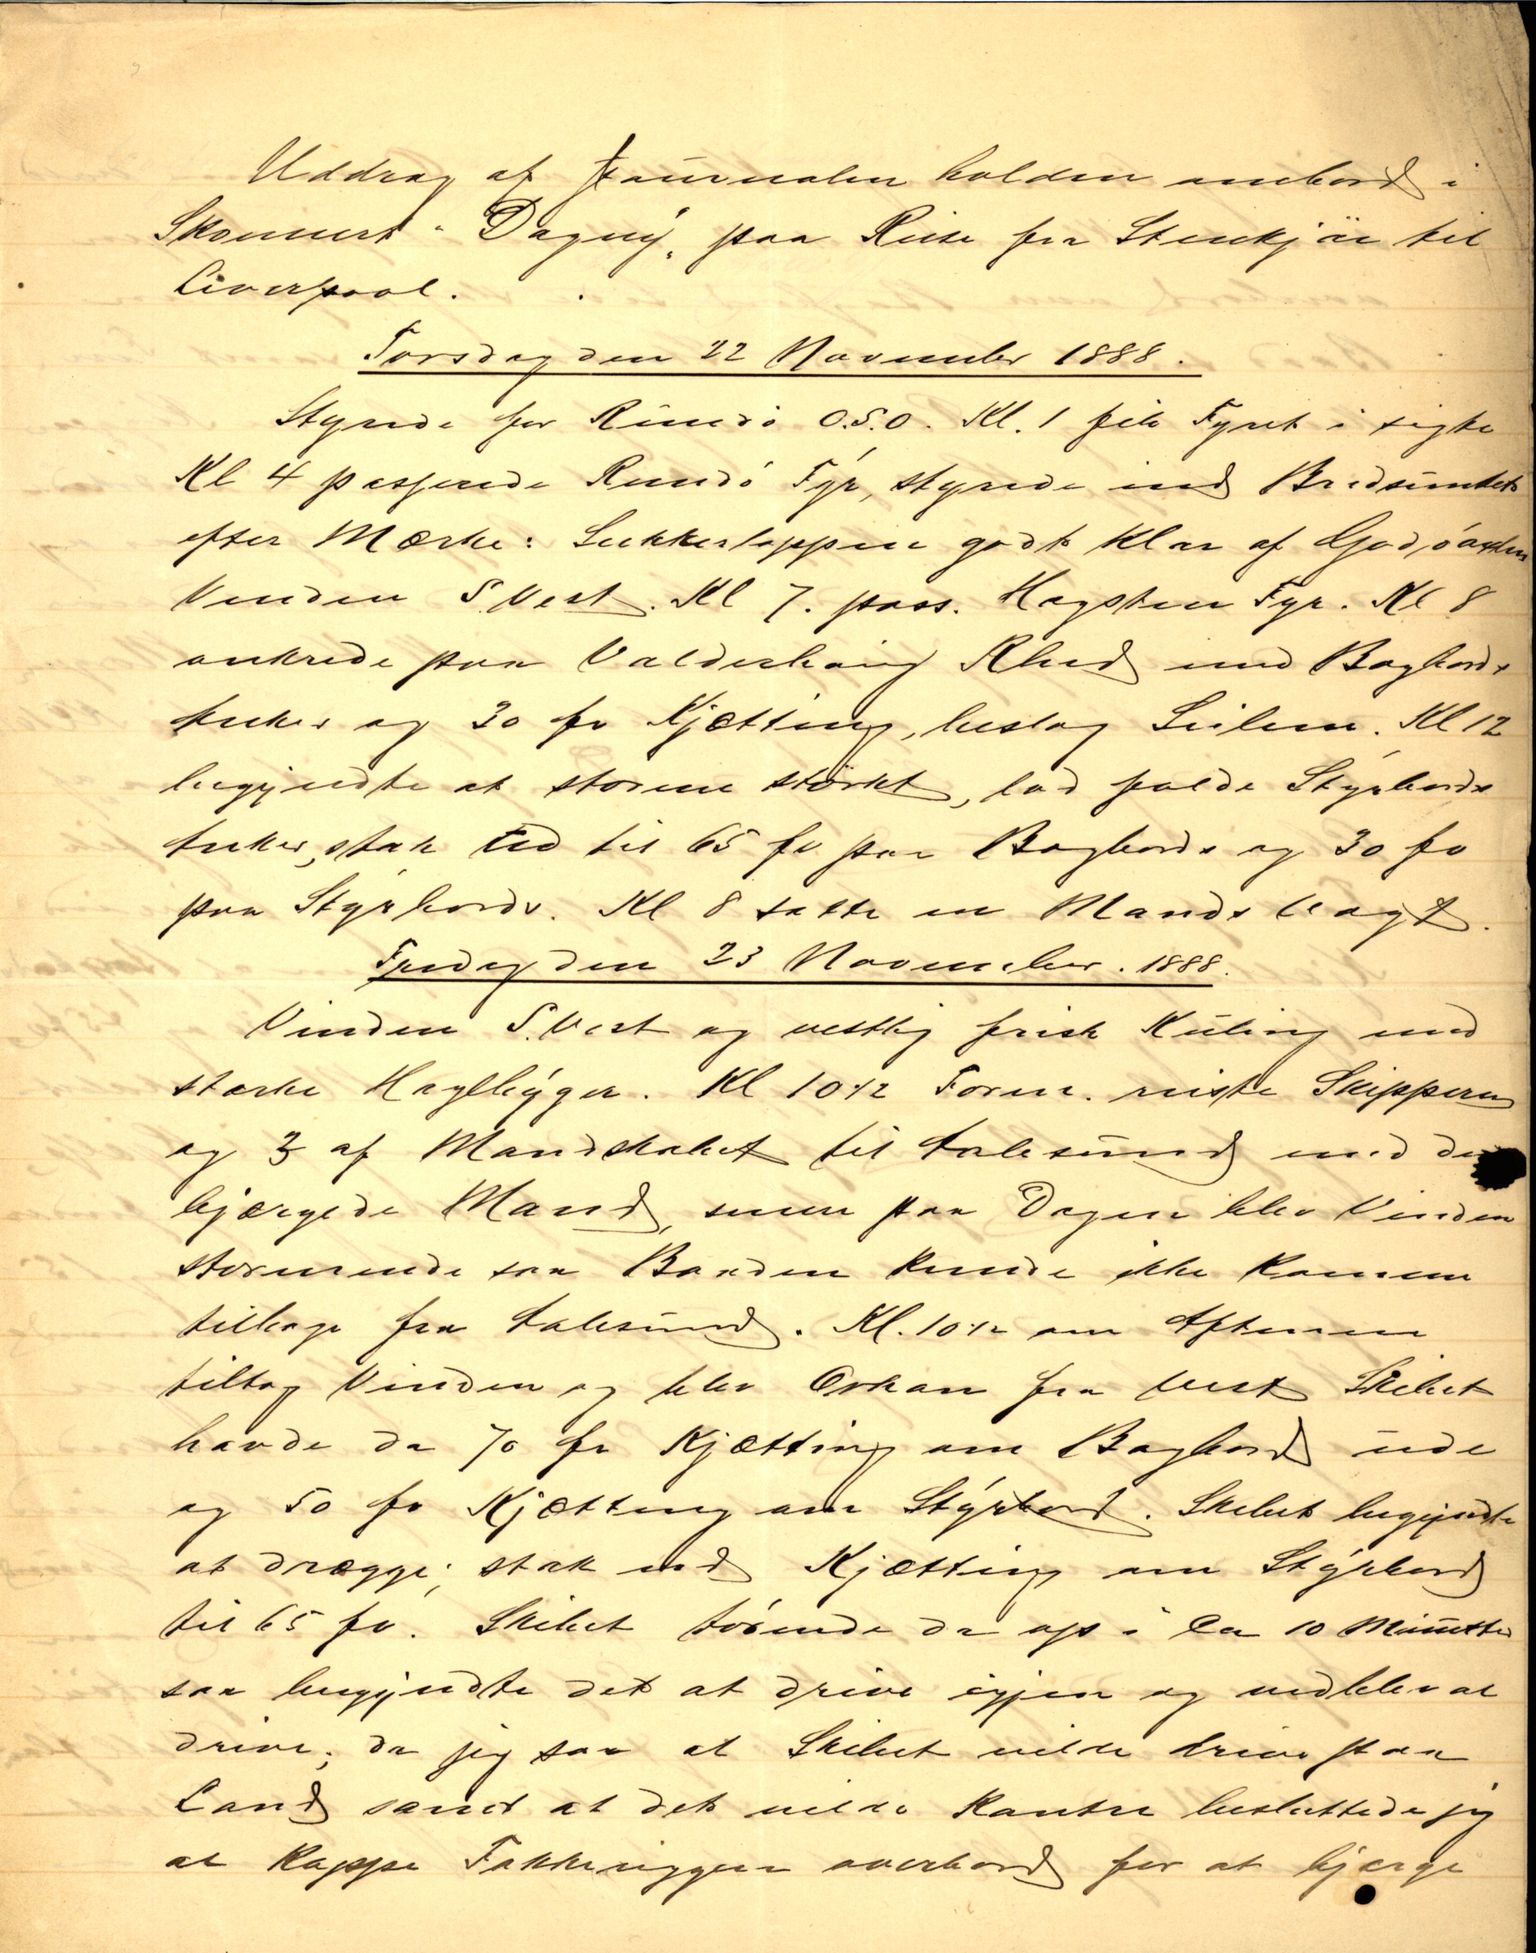 Uddrag af Journalen holden ombord i
Skonnert "Dagny" paa Reise fra Stenkjær til
Liverpool.
Torsdag den 22 November 1888.
Styrede for Rundö O.S.O. Kl. 1 fik Fyret i sigte
Kl 4 passerede Rundö Fyr, styrede ind Bredsundet
efter Mærke: Lukkertoppen godt klar af
Vinden S.Vest. Kl 7. pass. Hogsten Fyr. Kl 8
ankrede paa Valderhaug Rhed med Bagbords
Anker og 30 fv Kjætting, beslog Seilene. Kl 12
begyndte at storme stærkt, lod falde Styrbords
Anker, stak ud til 65 fv paa Bagbords og 30 fv
paa Styrbords. Kl 8 satte en Mands Vagt.
Fredag den 23 November. 1888.
Vinden S.Vest og vestlig frisk Kuling med
stærke Haglbyger. Kl 10 1/2 Form. reiste Skipperen
og 3 af Mandskabet til Aalesund med den
bjærgede Mand, senere paa Dagen blev Vinden
stormende saa Baaden kunde ikke komme
tilbage fra Aalesund. Kl. 10 1/2 om Aftenen
tiltog Vinden og blev Orkan fra Vest Skibet
havde da 70 fv Kjætting om Bagbord ude
og 50 fv Kjætting om Styrbord. Skibet begyndte
at drægge; stak ud Kjætting om Styrbord
til 65 fv. Skibet törnede da op i Ca 10 Minutter
saa begyndte det at drive igjen og vedblev at
drive; da jeg saa at Skibet vilde drive paa
Land samt at det vilde kantre besluttede jeg
at kappe Fokkeriggen overbord for at bjærge